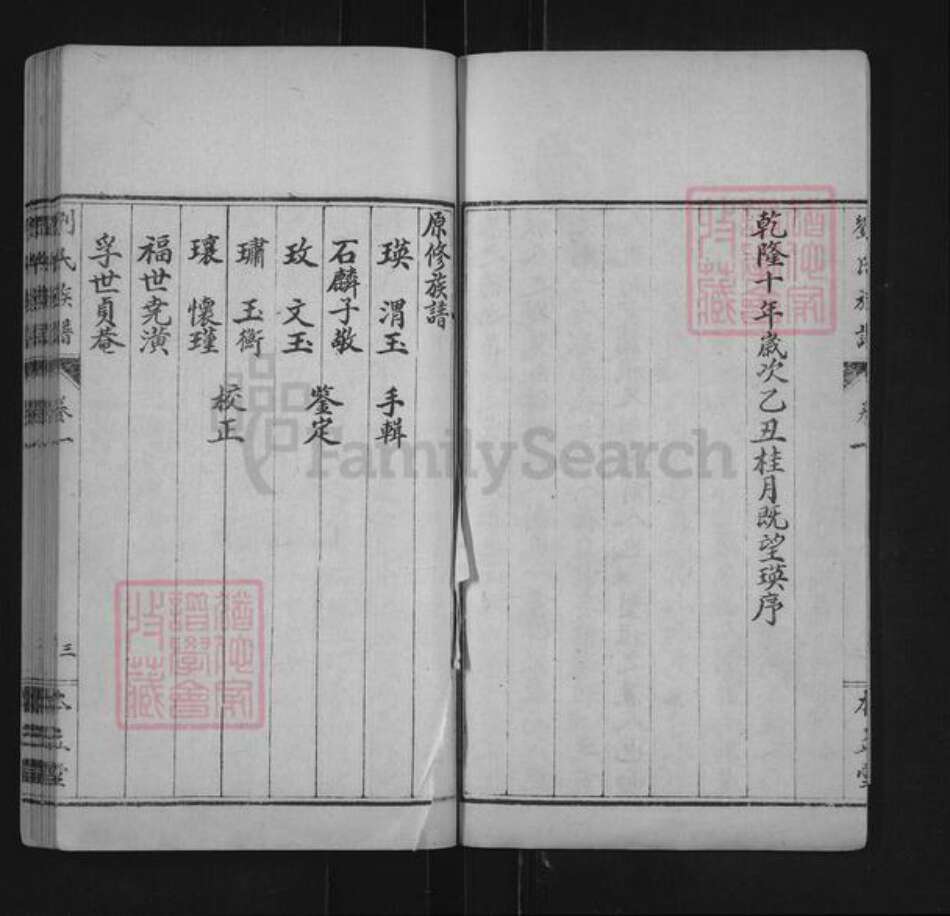 劉氏族譜 卷一
乾隆十年歲次乙丑桂月既望瑛序
原修族譜
瑛 渭玉 手輯
石麟子敬 鑒定
玫 文玉
璛 玉衡 校正
瓌 懷瑾
福世堯潢
孚世貞菴
劉氏族譜 卷一 三
猶他家譜學會收藏
FamilySearch